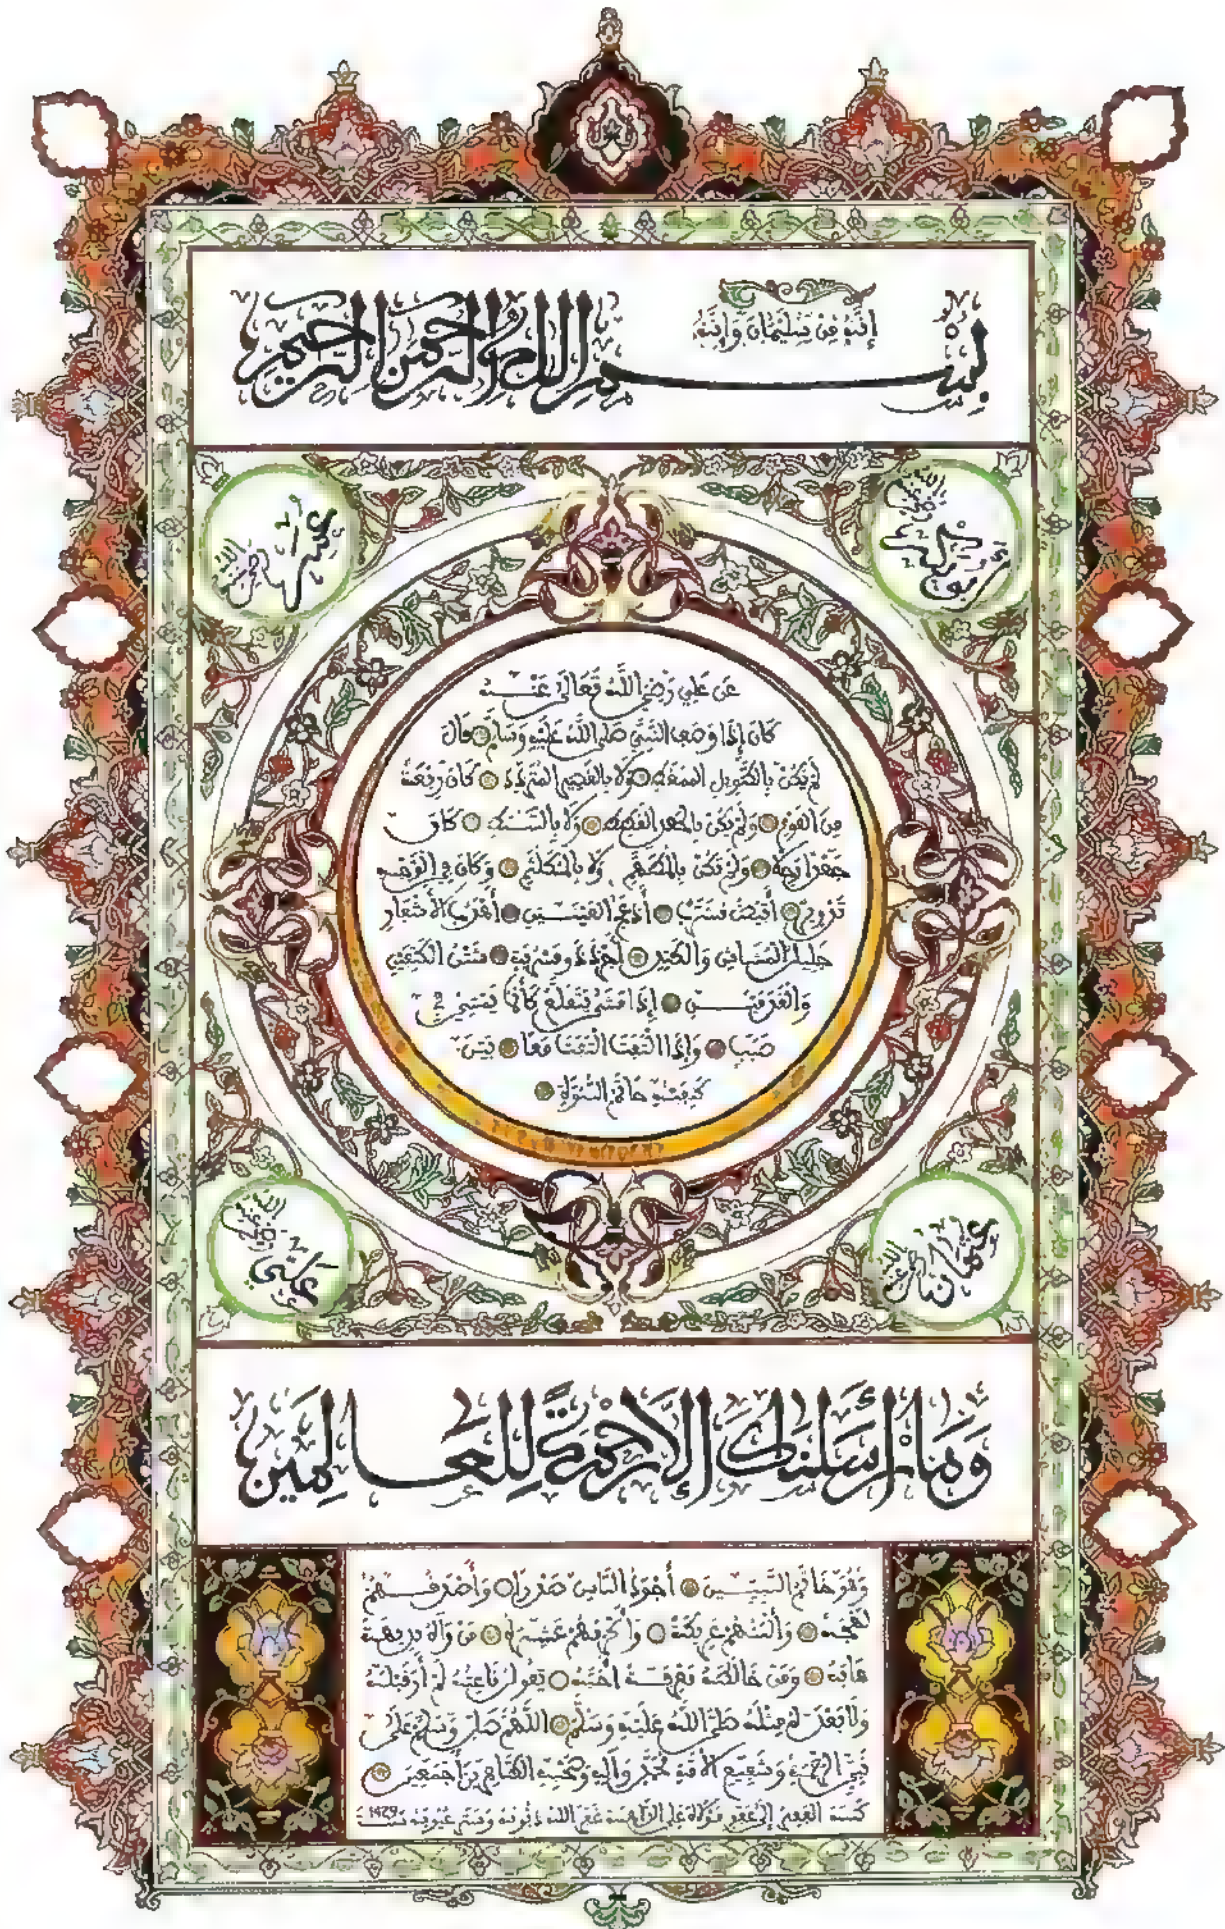 إنه من سليمان وإنه
بسم الله الرحمن الرحيم
أبو بكر الصديق رضي الله عنه
عمر رضي الله عنه
عن علي رضي الله تعالى عنه
كان إذا وصف النبي صلى الله عليه وسلم قال
لم يكن بالطويل الممغط ولا بالقصير المتردد كان ربعة
من القوم ولم يكن بالجعد القطط ولا بالسبط كان
جعدا رجلا ولم يكن بالمطهم ولا بالمكلثم وكان في الوجه
تدوير أبيض مشرب أدعج العينين أهدب الأشفار
جليل المشاش والكتد أجرد ذو مسربة شثن الكفين
والقدمين إذا مشى يتقلع كأنما يمشي في
صبب وإذا التفت التفت معا بين
كتفيه خاتم النبوة
عثمان رضي الله عنه
علي رضي الله عنه
وَمَا أَرْسَلْنَاكَ إِلَّا رَحْمَةً لِلْعَالَمِينَ
وهو خاتم النبيين أجود الناس صدرا وأصدقهم
لهجة وألينهم عريكة وأكرمهم عشيرة من رآه بديهة
هابه ومن خالطه معرفة أحبه يقول ناعته لم أر قبله
ولا بعده مثله صلى الله عليه وسلم اللهم صل وسلم على
نبي الرحمة وشفيع الأمة محمد وآله وصحبه الطاهرين أجمعين
كتبه الفقير إلى عفو مولاه علي غفر الله ذنوبه وستر عيوبه سنة ١٤٢٩